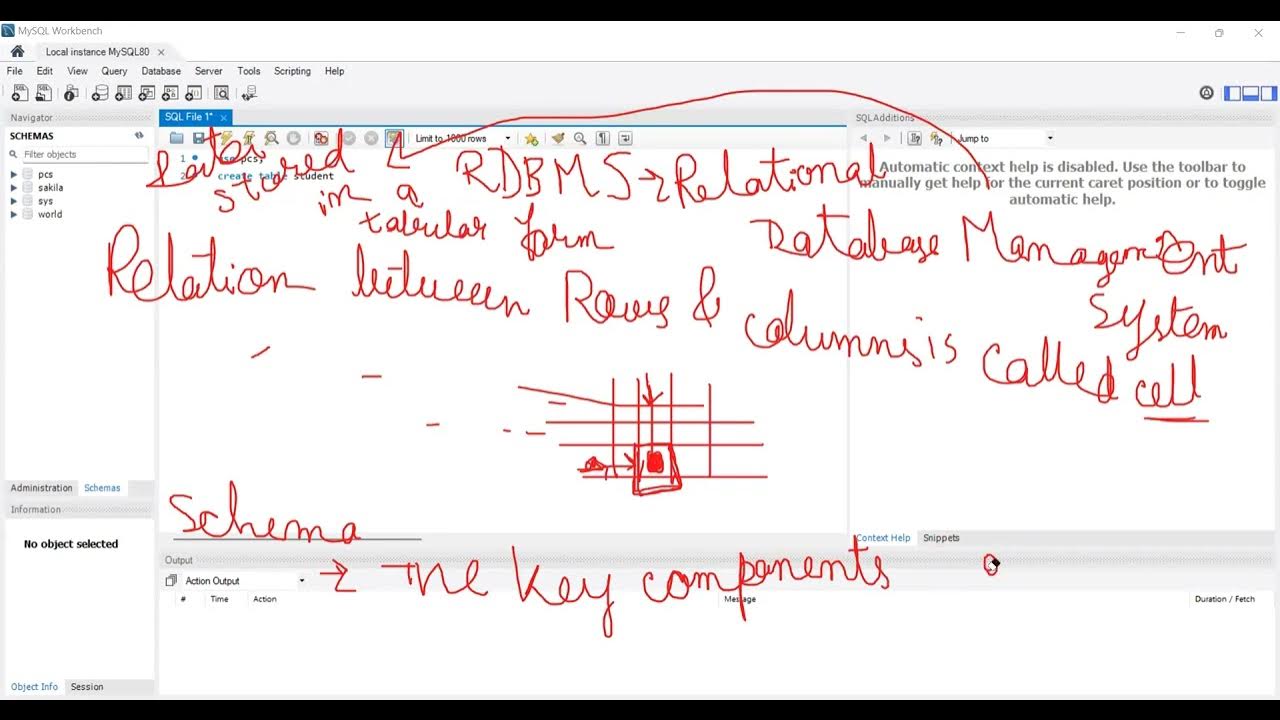 MySQL Workbench
Local instance MySQL80
File Edit View Query Database Server Tools Scripting Help
Navigator
SCHEMAS
Filter objects
pcs
sakila
sys
world
Administration Schemas
Information
No object selected
Object Info Session
SQL File 1*
Limit to 1000 rows
1
pcs;
create table student
SQLAdditions
Jump to
Automatic context help is disabled. Use the toolbar to
manually get help for the current caret position or to toggle
automatic help.
Data
stored
in a
tabular form
RDBMS → Relational
Database Management
System
Relation between Rows & columns is called cell
Schema
→ The key components
Context Help Snippets
Output
Action Output
# Time Action Message Duration / Fetch